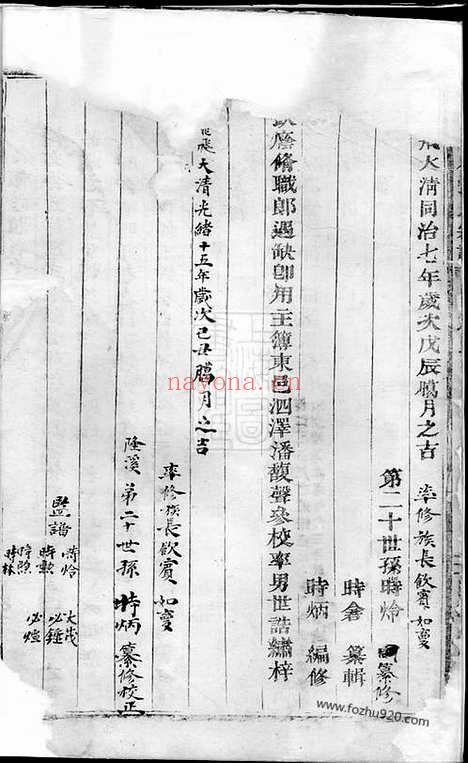 飛大清同治七年歲次戊辰臘月之吉
率修族長飲賓如變
第二十世孫時焀 纂修
時倉 纂輯
時炳 編修
修職郎遇缺即用主簿東邑泗澤潘馥聲參校率男世誥繡梓
飛大清光緒十五年歲次己丑臘月之吉
率修族長飲賓如變
隆溪第二十世孫時炳纂修校正
監譜
時勲
時煦
時林
大茂
必鍾
必煊
nayona.cn
www.fozhu920.com